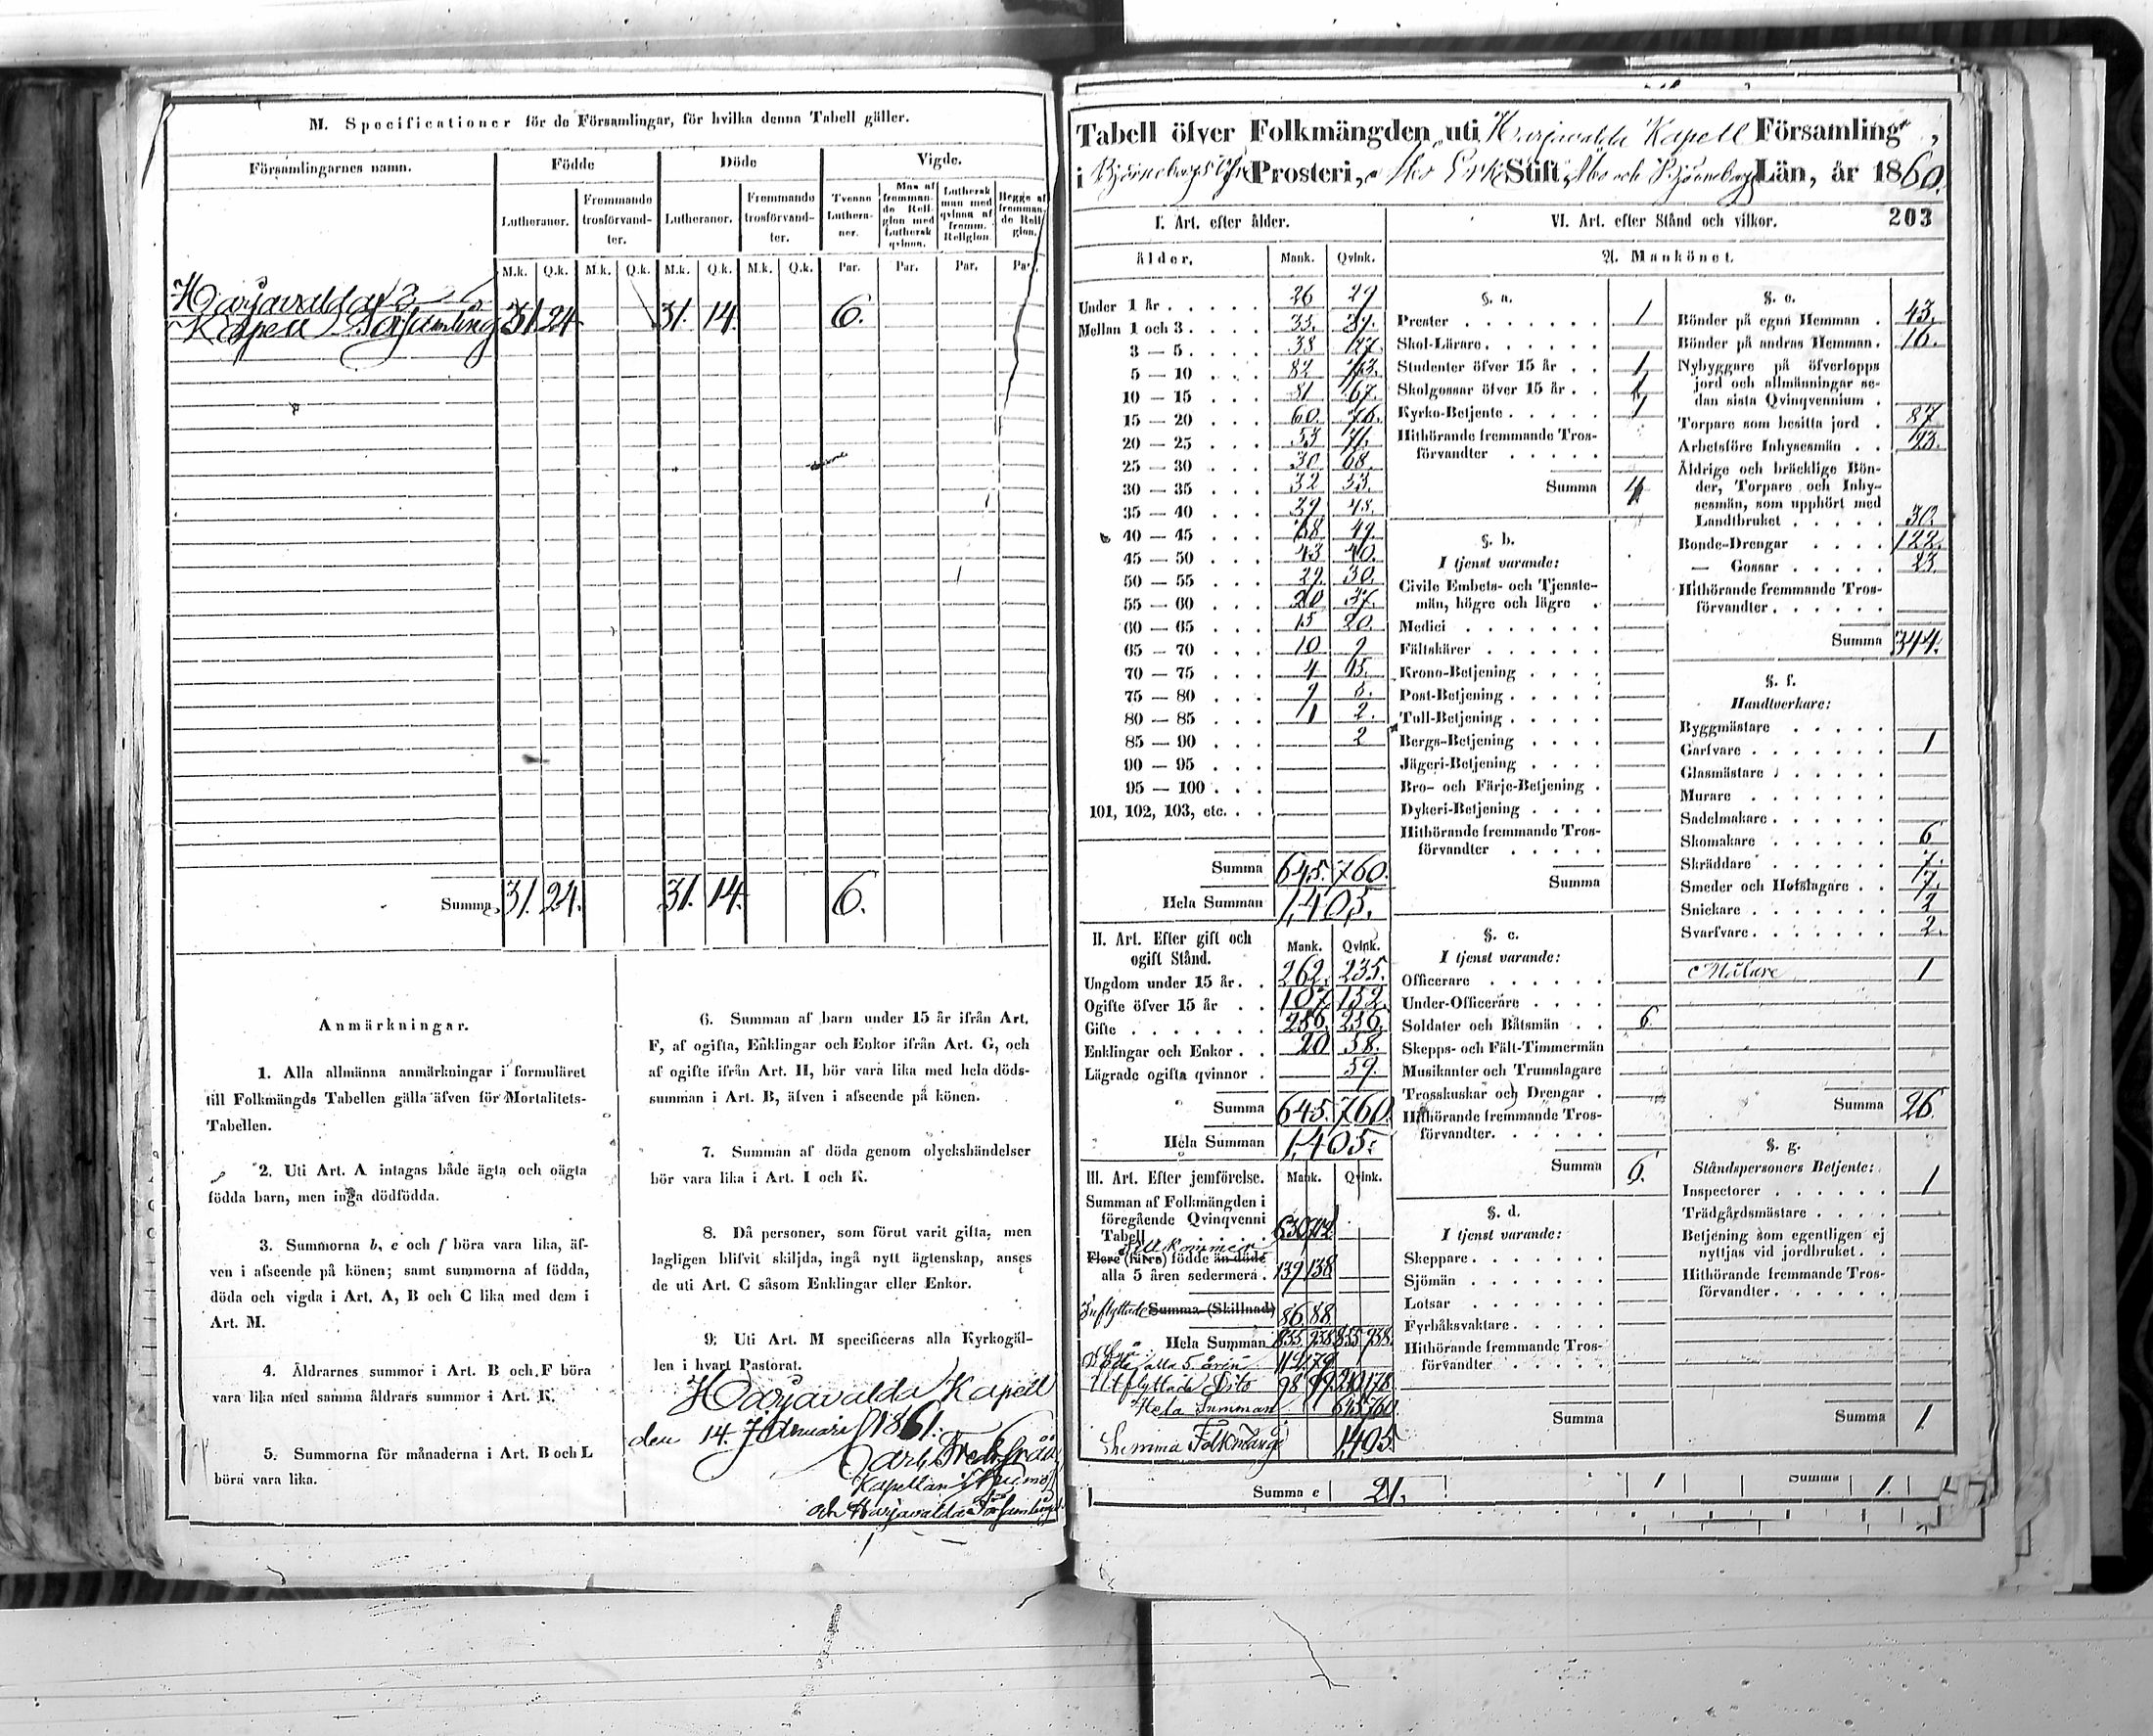 M. Specificationer för de Församlingar, för hvilka denna Tabell gäller.
Församlingarnes namn. Födde Döde Vigde.
Lutheraner. Fremmande trosförvandter. Lutheraner. Fremmande trosförvandter. Tvenne Lutheraner. Man af fremmande Religion med Luthersk qvinna. Luthersk man med qvinna af fremm. Religion. Begge af fremmande Religion.
M.k. Q.k. M.k. Q.k. M.k. Q.k. M.k. Q.k. Par. Par. Par. Par.
Harjavalda
Kapell Församling 31. 24. 31. 14. 6.
Summa. 31. 24. 31. 14. 6.
Anmärkningar.
1. Alla allmänna anmärkningar i formuläret
till Folkmängds Tabellen gälla äfven för Mortalitets-
Tabellen.
2. Uti Art. A intagas både ägta och oägta
födda barn, men inga dödfödda.
3. Summorna b, c och f böra vara lika, äf-
ven i afseende på könen; samt summorna af födda,
döda och vigda i Art. A, B och C lika med dem i
Art. M.
4. Åldrarnes summor i Art. B och F böra
vara lika med samma åldrars summor i Art. K.
5. Summorna för månaderna i Art. B och L
böra vara lika.
6. Summan af barn under 15 år ifrån Art.
F, af ogifta, Enklingar och Enkor ifrån Art. G, och
af ogifte ifrån Art. H, bör vara lika med hela döds-
summan i Art. B, äfven i afseende på könen.
7. Summan af döda genom olyckshändelser
bör vara lika i Art. I och K.
8. Då personer, som förut varit gifta, men
lagligen blifvit skiljda, ingå nytt ägtenskap, anses
de uti Art. C såsom Enklingar eller Enkor.
9. Uti Art. M specificeras alla Kyrkogäl-
len i hvart Pastorat.
Harjavalda Kapell
den 14. Januarii 1861.
Carl Fredr.
Kapellan i
och Harjavalda Församlingar
Tabell öfver Folkmängden uti Harjavalda Kapell Församling,
i Björneborgs Prosteri, Åbo Erke Stift, Åbo och Björneborgs Län, år 1860.
203
I. Art. efter ålder.
Ålder. Mank. Qvink.
Under 1 år 26 29
Mellan 1 och 3 33. 39.
3 — 5 38
5 — 10 82
10 — 15 81 67.
15 — 20 60. 76.
20 — 25 53 71.
25 — 30 30 68.
30 — 35 32 53.
35 — 40 39 48.
40 — 45 49.
45 — 50 43 40.
50 — 55 29. 30.
55 — 60 20 37.
60 — 65 15 20.
65 — 70 10 9
70 — 75 4 15.
75 — 80 9 8.
80 — 85 1 2.
85 — 90 2
90 — 95
95 — 100
101, 102, 103, etc.
Summa 645. 760.
Hela Summan 1,405.
II. Art. Efter gift och ogift Stånd. Mank. Qvink.
Ungdom under 15 år 262. 235.
Ogifte öfver 15 år 107. 152.
Gifte 256. 256.
Enklingar och Enkor 20 58.
Lägrade ogifta qvinnor 59.
Summa 645. 760.
Hela Summan 1,405.
III. Art. Efter jemförelse. Mank. Qvink.
Summan af Folkmängden i
föregående Qvinqvenni
Tabell 630 712
Tillkommer
Flere (färre) födde än döde
alla 5 åren sedermera 139 138
Inflyttade Summa (Skillnad) 86 88
Hela Summan 855 938 855 938.
Döde alla 5 åren 112 79.
Utflyttade Dito 98 99. 210 178
Hela Summan 645 760.
Summa Folkmängd 1,405.
VI. Art. efter Stånd och vilkor.
A. Mankönet.
§. a.
Prester 1
Skol-Lärare
Studenter öfver 15 år 1
Skolgossar öfver 15 år 1
Kyrko-Betjente 1
Hithörande fremmande Tros-
förvandter
Summa 4
§. b.
I tjenst varande:
Civile Embets- och Tjenste-
män, högre och lägre
Medici
Fältskärer
Krono-Betjening
Post-Betjening
Tull-Betjening
Bergs-Betjening
Jägeri-Betjening
Bro- och Färje-Betjening
Dykeri-Betjening
Hithörande fremmande Tros-
förvandter
Summa
§. c.
I tjenst varande:
Officerare
Under-Officerare
Soldater och Båtsmän 6
Skepps- och Fält-Timmermän
Musikanter och Trumslagare
Trosskuskar och Drengar
Hithörande fremmande Tros-
förvandter.
Summa 6.
§. d.
I tjenst varande:
Skeppare
Sjömän
Lotsar
Fyrbåksvaktare
Hithörande fremmande Tros-
förvandter
Summa
§. e.
Bönder på egna Hemman 43.
Bönder på andras Hemman 16.
Nybyggare på öfverlopps
jord och allmänningar se-
dan sista Qvinqvennium
Torpare som besitta jord 87
Arbetsföre Inhysesmän 23.
Åldrige och bräcklige Bön-
der, Torpare och Inhy-
sesmän, som upphört med
Landtbruket 30.
Bonde-Drengar 122.
— Gossar 23.
Hithörande fremmande Tros-
förvandter
Summa 344.
§. f.
Handtverkare:
Byggmästare
Garfvare 1
Glasmästare
Murare
Sadelmakare
Skomakare 6
Skräddare 7.
Smeder och Hofslagare 7.
Snickare 2
Svarfvare 2.
Målare 1
Summa 26.
§. g.
Ståndspersoners Betjente:
Inspectorer 1
Trädgårdsmästare
Betjening som egentligen ej
nyttjas vid jordbruket.
Hithörande fremmande Tros-
förvandter
Summa 1.
Summa e 21. 1 Summa 1.